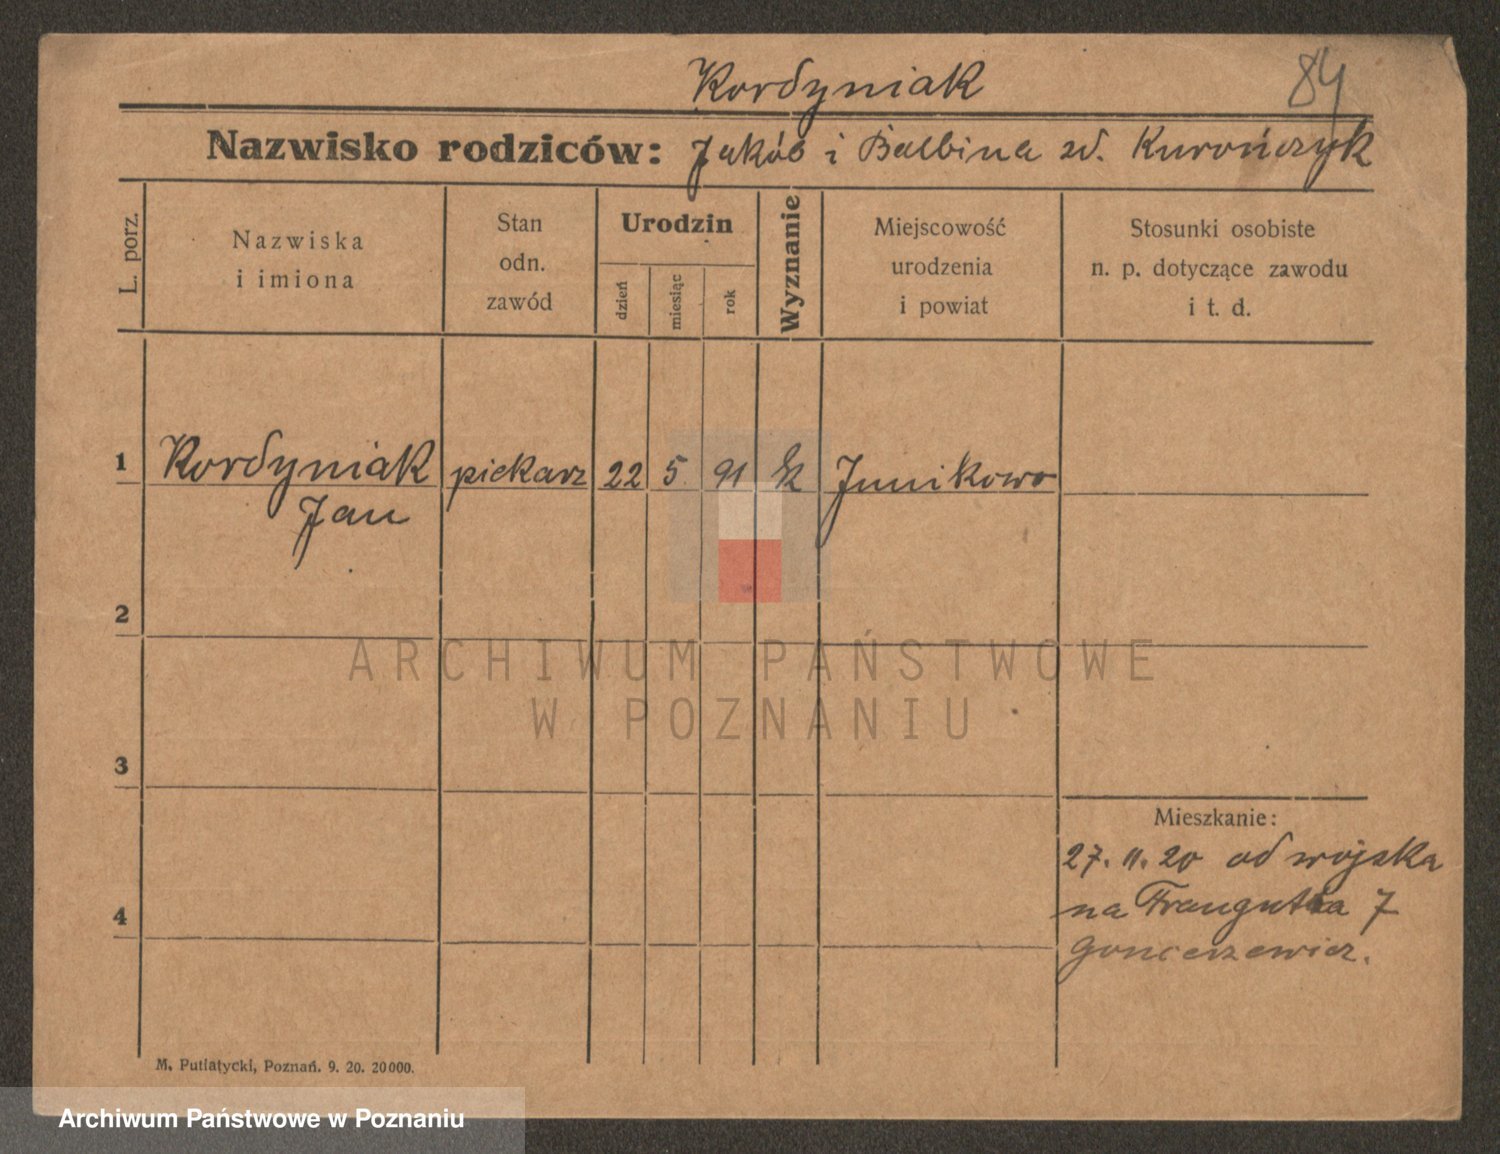 Kordyniak
84
Nazwisko rodziców: Jakób i Balbina zd. Kurończyk
L. porz.
Nazwiska
i imiona
Stan
odn.
zawód
Urodzin
dzień
miesiąc
rok
Wyznanie
Miejscowość
urodzenia
i powiat
Stosunki osobiste
n. p. dotyczące zawodu
i t. d.
1 Kordyniak piekarz 22 5 91 Junikowo
Jan
2
3
4
Mieszkanie:
27. 11. 20 od wojska
na Traugutta 7
Goncerzewicz.
M. Putiatycki, Poznań. 9. 20. 20000.
ARCHIWUM PAŃSTWOWE
W POZNANIU
Archiwum Państwowe w Poznaniu